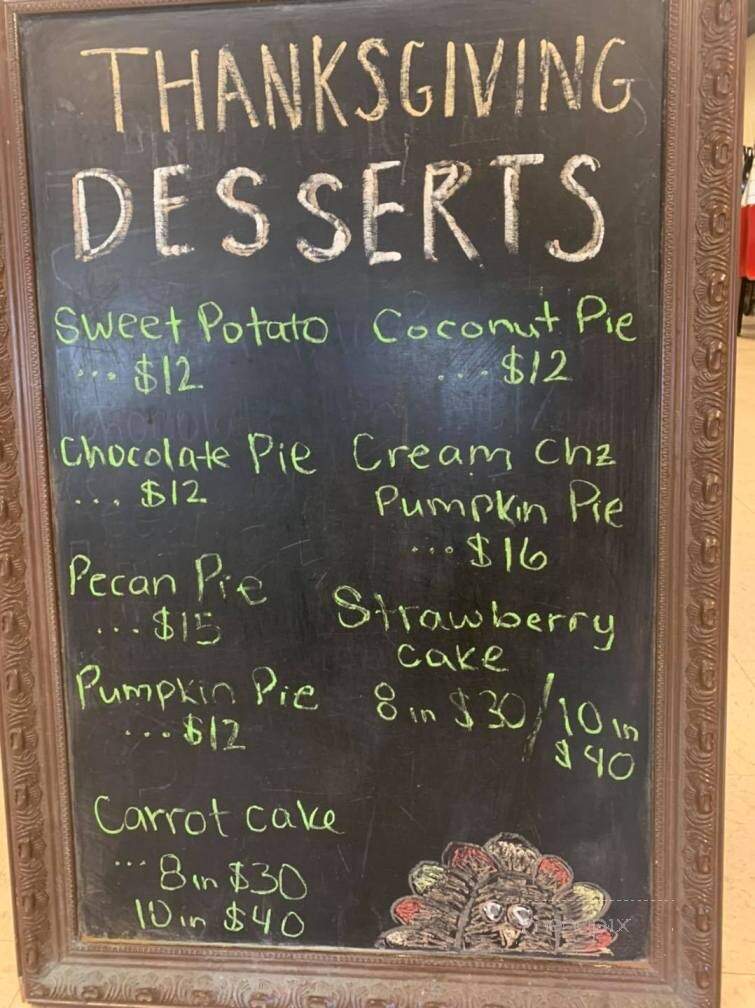 THANKSGIVING
DESSERTS
Sweet Potato
... $12
Chocolate Pie
... $12
Pecan Pie
... $15
Pumpkin Pie
... $12
Carrot cake
... 8 in $30
10 in $40
Coconut Pie
... $12
Cream Chz
Pumpkin Pie
... $16
Strawberry
cake
8 in $30/10 in
$40